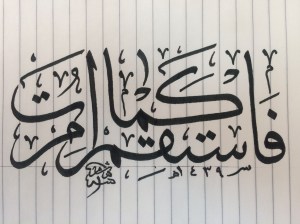 فَاسْتَقِمْ كَمَا أُمِرْتَ
١٤٣٩هـ